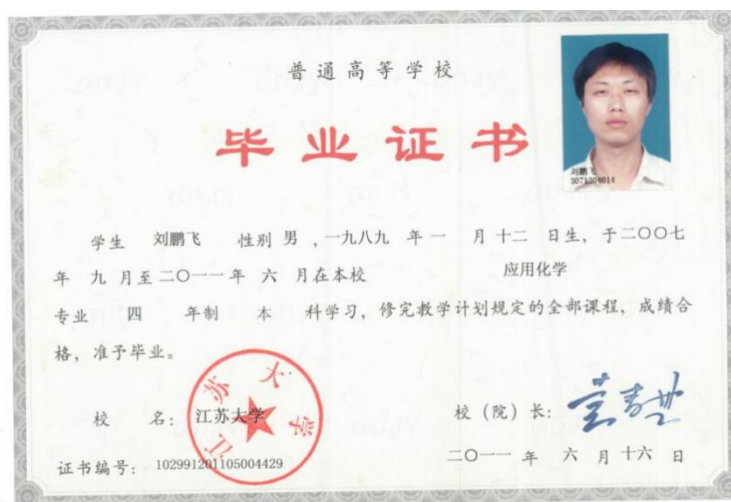 普通高等学校
毕业证书
刘鹏飞
3071304014
学生 刘鹏飞 性别 男 ，一九八九 年 一 月 十二 日生，于二〇〇七
年 九 月至二〇一一年 六 月在本校 应用化学
专业 四 年制 本 科学习，修完教学计划规定的全部课程，成绩合
格，准予毕业。
江苏大学
校 名：江苏大学 校（院）长：
证书编号：102991201105004429 二〇一一 年 六 月 十六 日